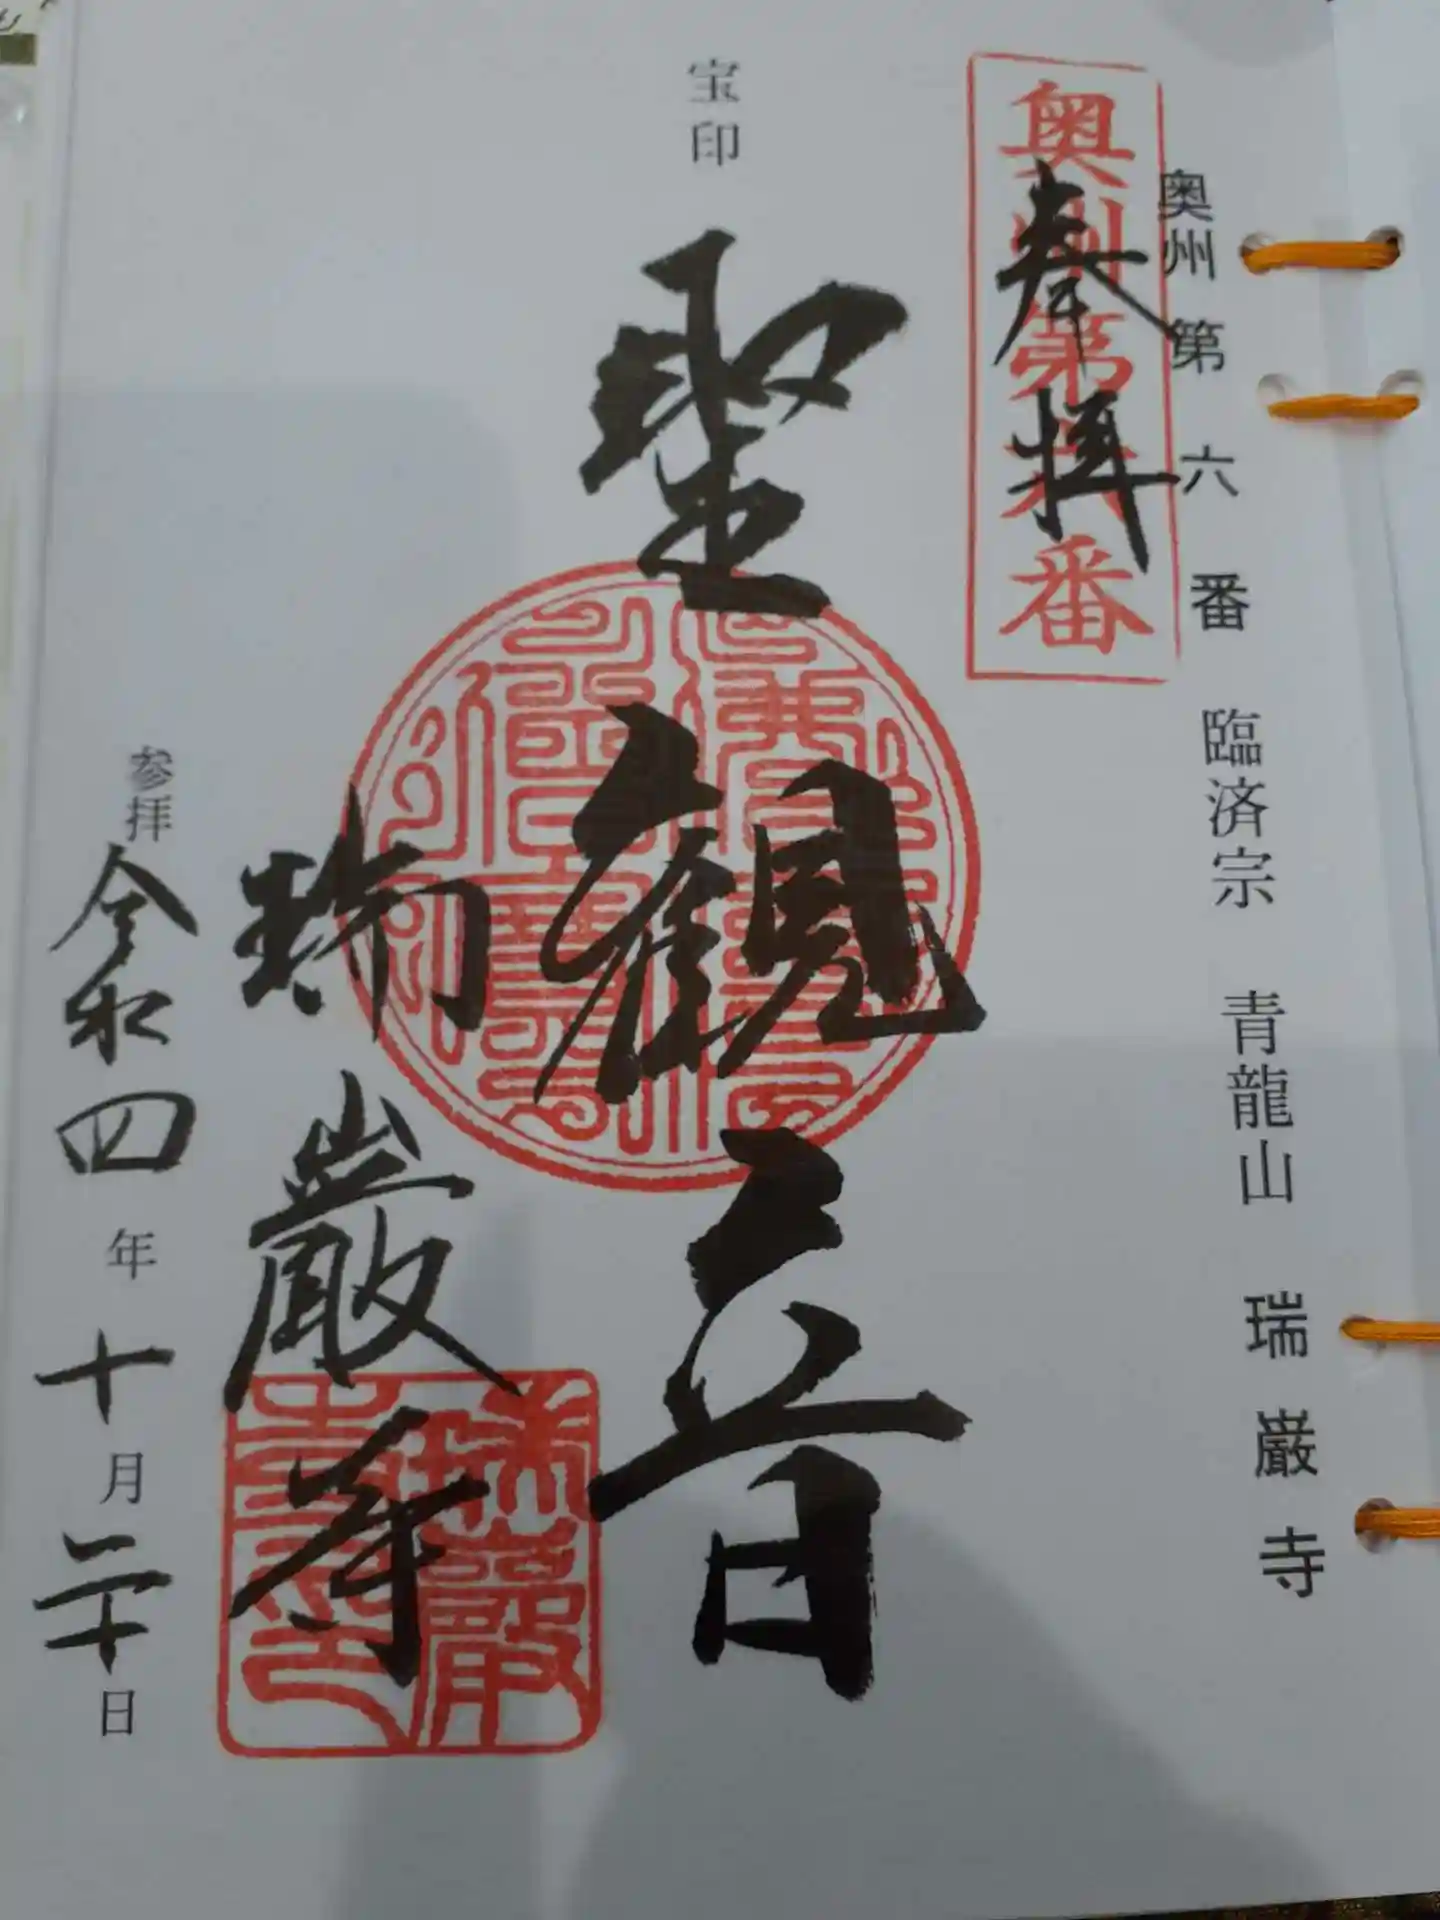 奥州第六番 臨済宗 青龍山 瑞巌寺
奥州第六番
奉拝
宝印
聖観音
瑞巌寺
参拝 令和四年十月二十日